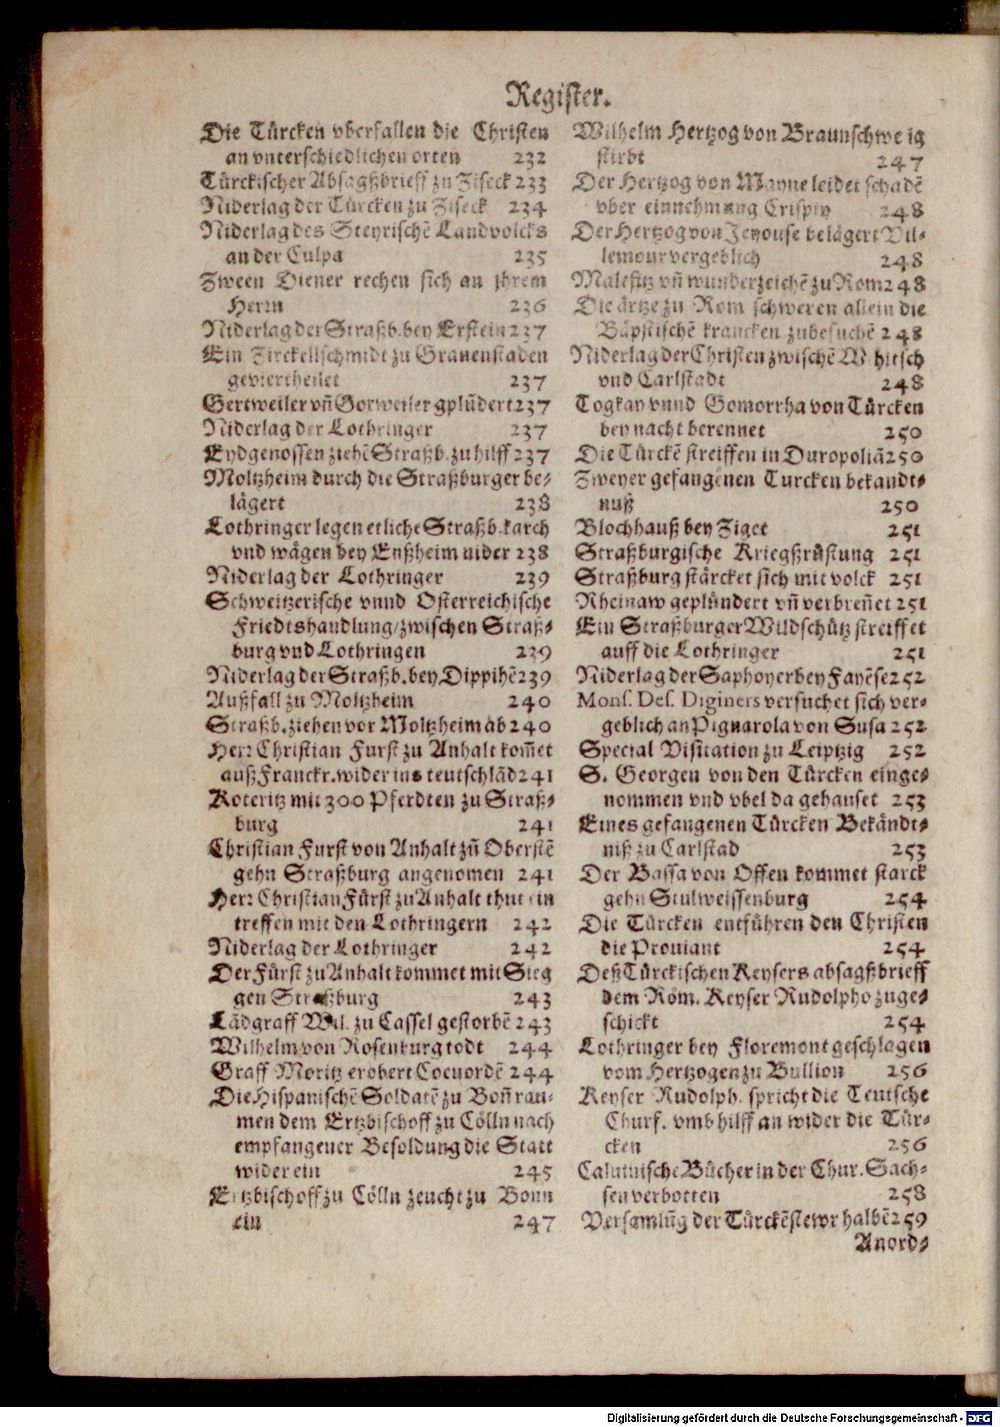 Register.
Die Türcken vberfallen die Christen
an vnterschiedlichen orten 232
Türckischer Absagßbrieff zu Ziseck 233
Niderlag der Türcken zu Ziseck 234
Niderlag des Steyrischē Landvolcks
an der Culpa 235
Zween Diener rechen sich an jhrem
Herrn 236
Niderlag der Straßb. bey Erstein 237
Ein Zirckellschmidt zu Grauenstaden
geviertheilet 237
Gertweiler vñ Gorweiler gplūdert 237
Niderlag der Lothringer 237
Eydgenossen ziehē Straßb. zu hilff 237
Moltzheim durch die Straßburger be-
lägert 238
Lothringer legen etliche Straßb. karch
vnd wägen bey Enßheim nider 238
Niderlag der Lothringer 239
Schweitzerische vnnd Osterreichische
Friedtshandlung/zwischen Straß-
burg vnd Lothringen 239
Niderlag der Straßb. bey Dippihē 239
Außfall zu Moltzheim 240
Straßb. ziehen vor Moltzheim ab 240
Herr Christian Furst zu Anhalt kom̄et
auß Franckr. wider ins teutschlād 241
Koteritz mit 300 Pferdten zu Straß-
burg 241
Christian Furst von Anhalt zū Oberstē
gehn Straßburg angenomen 241
Herr Christian Fürst zu Anhalt thut ein
treffen mit den Lothringern 242
Niderlag der Lothringer 242
Der Fürst zu Anhalt kommet mit Sieg
gen Straßburg 243
Lādgraff Wil. zu Cassel gestorbē 243
Wilhelm von Rosenburg todt 244
Graff Moritz erobert Coeuordē 244
Die Hispanischē Soldatē zu Boñ rau-
men dem Ertzbischoff zu Cölln nach
empfangener Besoldung die Statt
wider ein 245
Ertzbischoff zu Cölln zeucht zu Bonn
ein 247
Wilhelm Hertzog von Braunschweig
stirbt 247
Der Hertzog von Mayne leidet schadē
vber einnehmung Crispin 248
Der Hertzog von Jeyouse belägert Vil-
lemour vergeblich 248
Malefitz vñ wunderzeichē zu Rom 248
Die ärtze zu Rom schweren allein die
Bäpstischē krancken zubesuchē 248
Niderlag der Christen zwischē Whitsch
vnd Carlstadt 248
Togkay vnnd Gomorrha von Türcken
bey nacht berennet 250
Die Türckē streiffen in Duropoliā 250
Zweyer gefangenen Turcken bekandt-
nuß 250
Blochhauß bey Ziget 251
Straßburgische Kriegßrüstung 251
Straßburg stärcket sich mit volck 251
Rheinaw geplündert vñ verbreñet 251
Ein Straßburger Wildschütz streiffet
auff die Lothringer 251
Niderlag der Saphoyer bey Fayēse 252
Mons. Des. Diginers versuchet sich ver-
geblich an Pignarola von Susa 252
Special Visitation zu Leiptzig 252
S. Georgen von den Türcken einge-
nommen vnd vbel da gehauset 253
Eines gefangenen Türcken Bekändt-
niß zu Carlstad 253
Der Bassa von Offen kommet starck
gehn Stulweissenburg 254
Die Türcken entführen den Christen
die Prouiant 254
Deß Türckischen Keysers absagßbrieff
dem Röm. Keyser Rudolpho zuge-
schickt 254
Lothringer bey Floremont geschlagen
vom Hertzogen zu Bullion 256
Keyser Rudolph. spricht die Teutsche
Churf. vmb hilff an wider die Tür-
cken 256
Caluinische Bücher in der Chur. Sach-
sen verbotten 258
Versamlūg der Türckēstewr halbē 259
Anord-
Digitalisierung gefördert durch die Deutsche Forschungsgemeinschaft - DFG